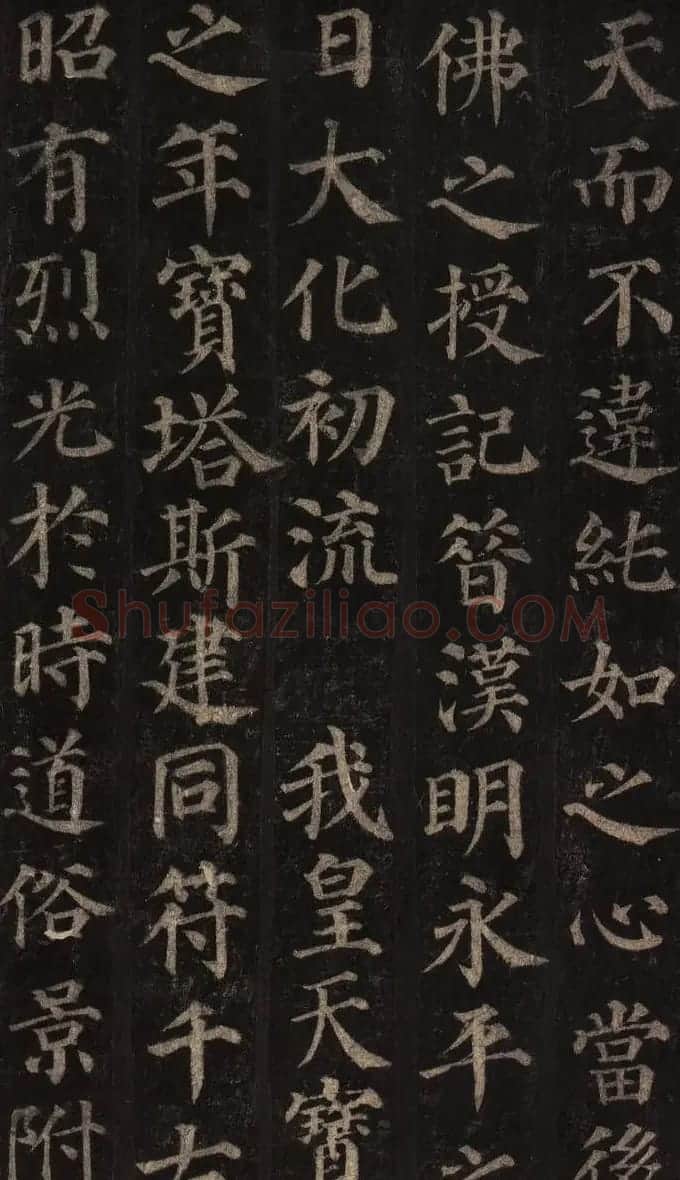 天而不違純如之心當後
佛之授記昔漢明永平之
日大化初流　我皇天寶
之年寶塔斯建同符千古
昭有烈光於時道俗景附
Shufaziliao.COM